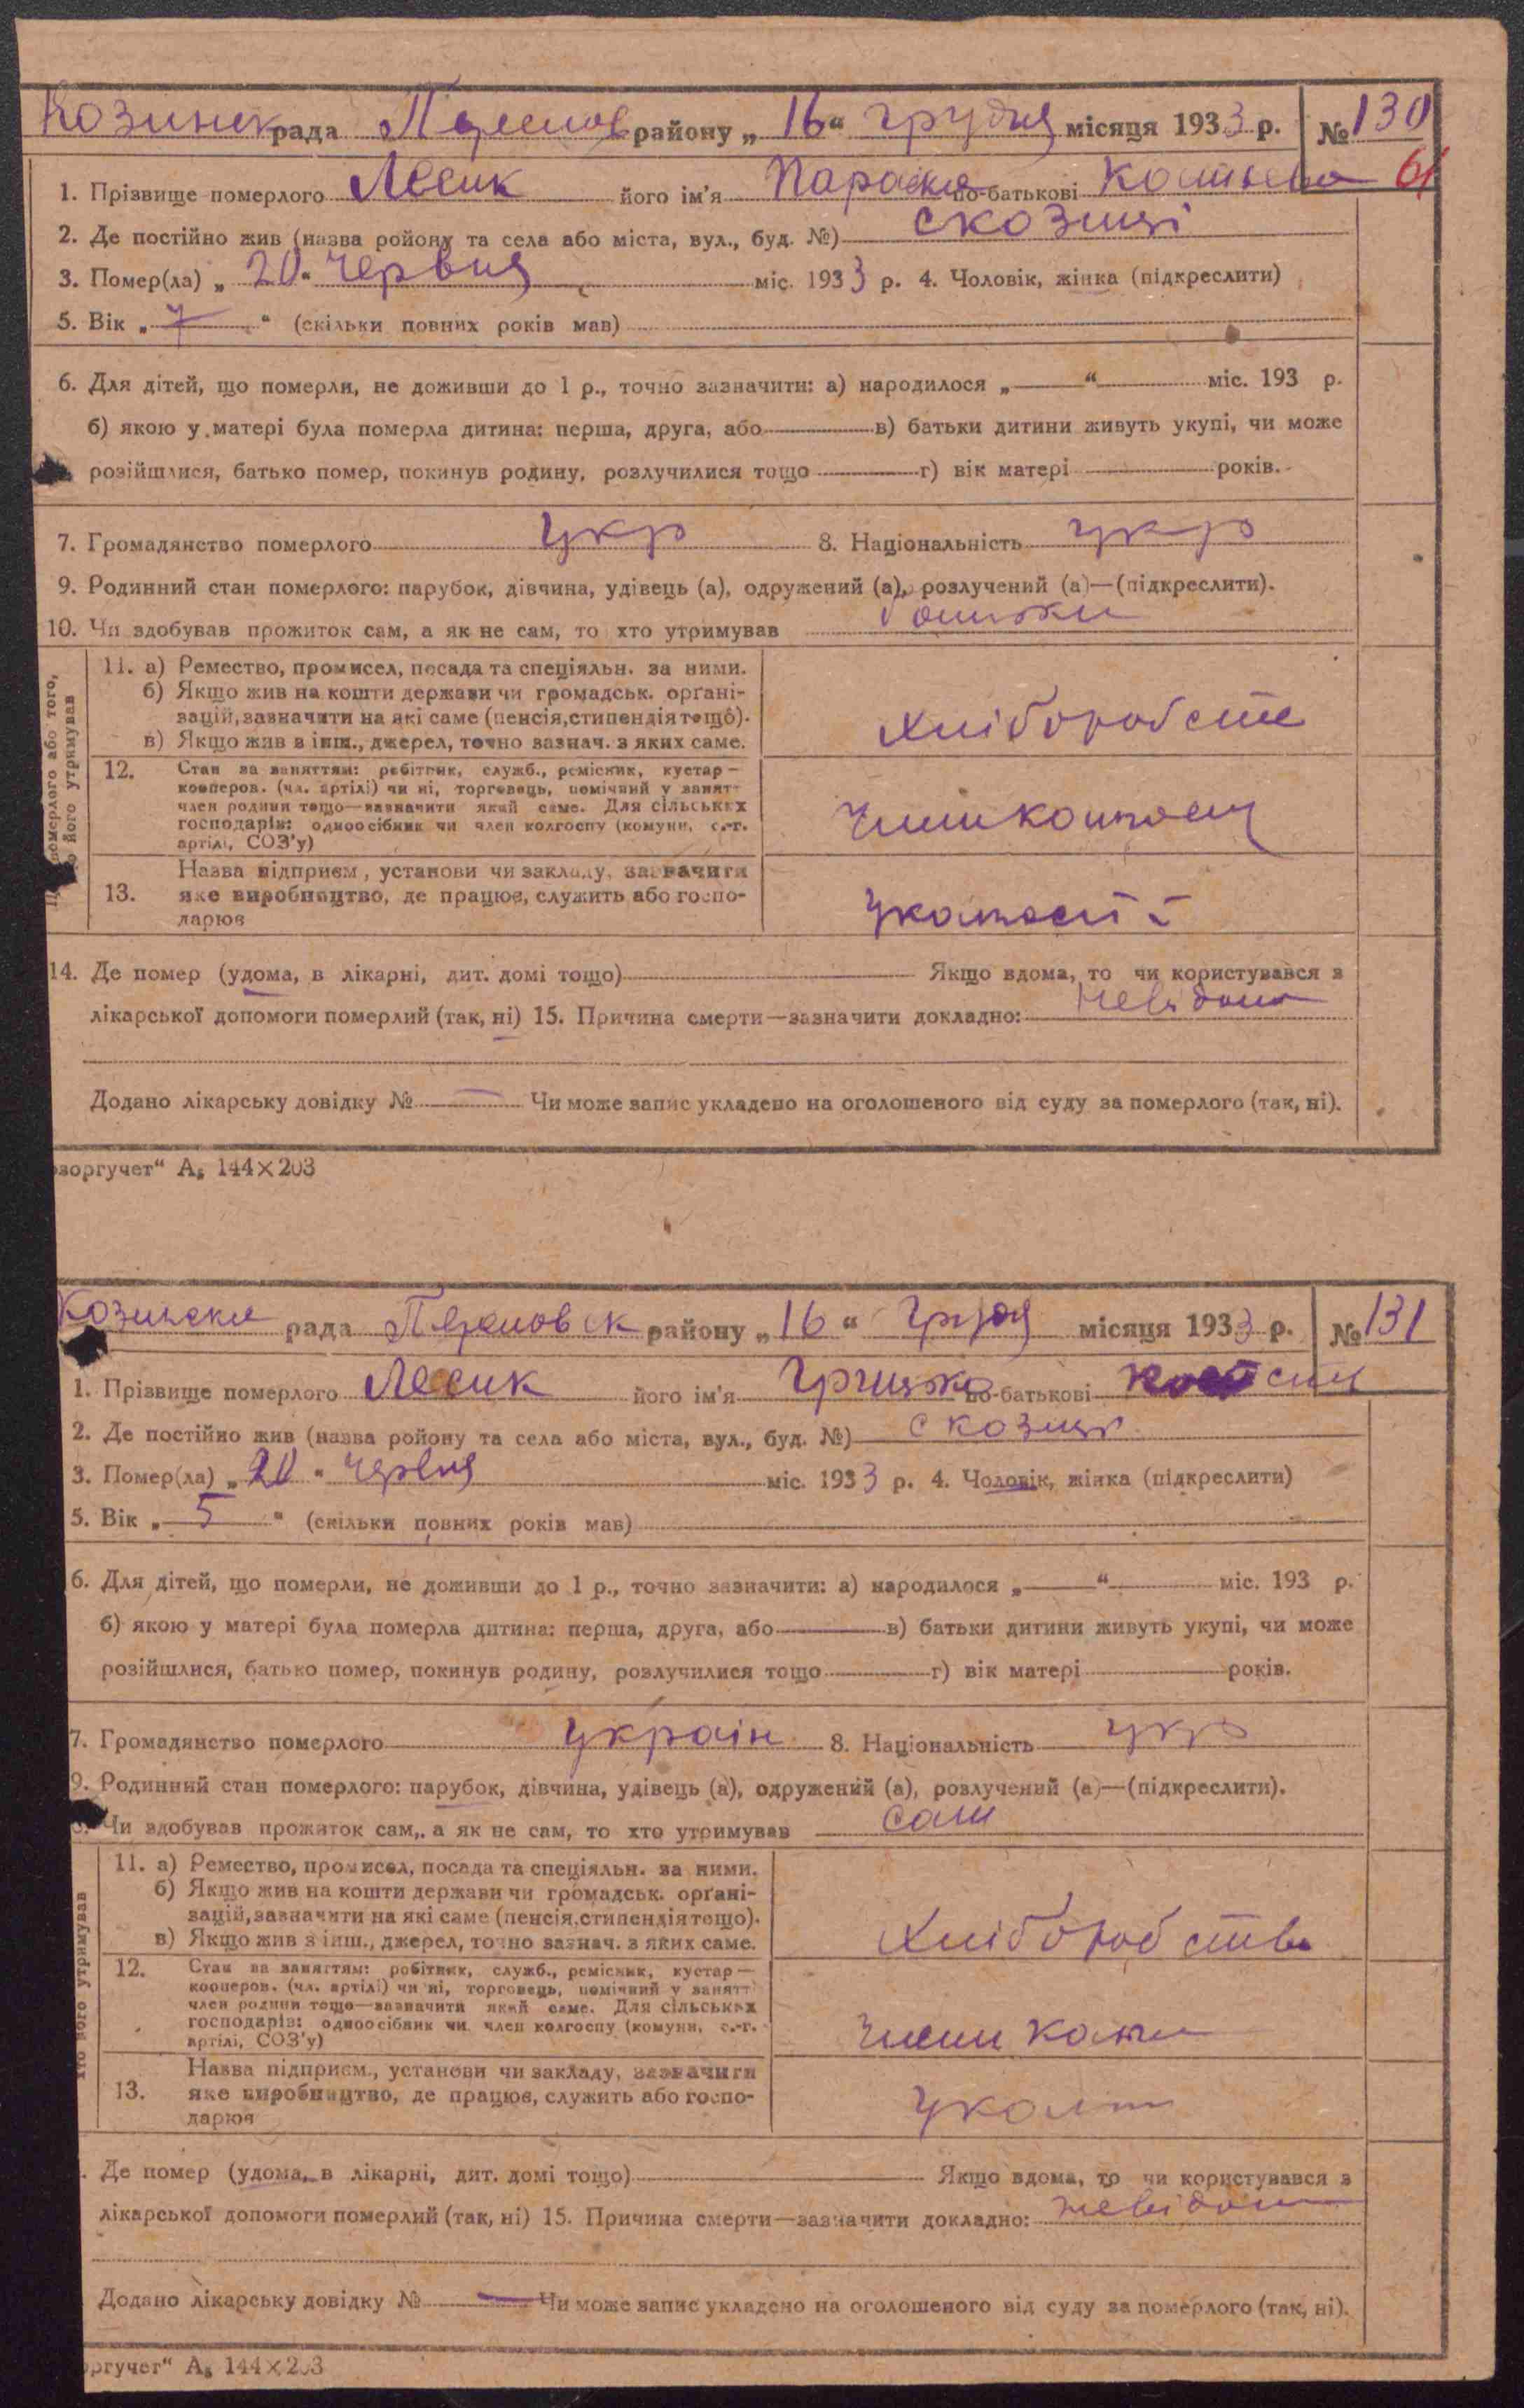 Козинск рада Переяслов району „ 16 “ грудня місяця 1933 р. № 130
61
1. Прізвище померлого Лесик його ім'я Параска по-батькові
2. Де постійно жив (назва ройону та села або міста, вул., буд. №) с Козинці
3. Помер(ла) „ 20 “ червня міс. 1933 р. 4. Чоловік, жінка (підкреслити)
5. Вік „ 7 “ (скільки повних років мав)
6. Для дітей, що померли, не доживши до 1 р., точно зазначити: а) народилося „ — “ міс. 193 р.
б) якою у матері була померла дитина: перша, друга, або — в) батьки дитини живуть укупі, чи може
розійшлися, батько помер, покинув родину, розлучилися тощо — г) вік матері — років.
7. Громадянство померлого укр 8. Національність укр
9. Родинний стан померлого: парубок, дівчина, удівець (а), одружений (а), розлучений (а)—(підкреслити).
10. Чи здобував прожиток сам, а як не сам, то хто утримував батьки
померлого або того,
о його утримував
11. а) Ремество, промисел, посада та спеціяльн. за ними.
б) Якщо жив на кошти держави чи громадськ. орґані-
зацій, зазначити на які саме (пенсія, стипендія тощо).
в) Якщо жив в інш., джерел, точно зазнач. з яких саме.
Хліборобств
12. Стан за заняттям: робітник, служб., ремісник, кустар—
кооперов. (чл. артілі) чи ні, торговець, помічний у занят-
член родини тощо—зазначити який саме. Для сільських
господарів: одноосібник чи член колгоспу (комуни, с.-г.
артілі, СОЗ'у)
13. Назва підприєм., установи чи закладу, зазначити
яке виробництво, де працює, служить або госпо-
дарює
14. Де помер (удома, в лікарні, дит. домі тощо) Якщо вдома, то чи користувався з
лікарської допомоги померлий (так, ні) 15. Причина смерти—зазначити докладно: невідома
Додано лікарську довідку № — Чи може запис укладено на оголошеного від суду за померлого (так, ні).
зоргучет“ А₅ 144×203
Козинска рада Переяловск району „ 16 “ грудня місяця 1933 р. № 131
1. Прізвище померлого Лесик його ім'я Грицько по-батькові
2. Де постійно жив (назва ройону та села або міста, вул., буд. №) с Козинц
3. Помер(ла) „ 20 “ червня міс. 1933 р. 4. Чоловік, жінка (підкреслити)
5. Вік „ 5 “ (скільки повних років мав)
6. Для дітей, що померли, не доживши до 1 р., точно зазначити: а) народилося „ — “ міс. 193 р.
б) якою у матері була померла дитина: перша, друга, або — в) батьки дитини живуть укупі, чи може
розійшлися, батько помер, покинув родину, розлучилися тощо — г) вік матері — років.
7. Громадянство померлого україн 8. Національність укр
9. Родинний стан померлого: парубок, дівчина, удівець (а), одружений (а), розлучений (а)—(підкреслити).
Чи здобував прожиток сам, а як не сам, то хто утримував сам
його утримував
11. а) Ремество, промисел, посада та спеціяльн. за ними.
б) Якщо жив на кошти держави чи громадськ. орґані-
зацій, зазначити на які саме (пенсія, стипендія тощо).
в) Якщо жив з інш., джерел, точно зазнач. з яких саме.
Хліборобство
12. Стан за заняттям: робітник, служб., ремісник, кустар—
кооперов. (чл. артілі) чи ні, торговець, помічний у занятт
член родини тощо—зазначити який саме. Для сільських
господарів: одноосібник чи член колгоспу (комуни, с.-г.
артілі, СОЗ'у)
13. Назва підприєм., установи чи закладу, зазначити
яке виробництво, де працює, служить або госпо-
дарює
Де помер (удома, в лікарні, дит. домі тощо) Якщо вдома, то чи користувався з
лікарської допомоги померлий (так, ні) 15. Причина смерти—зазначити докладно: невідом
Додано лікарську довідку № — Чи може запис укладено на оголошеного від суду за померлого (так, ні).
ргучет“ А₅ 144×203